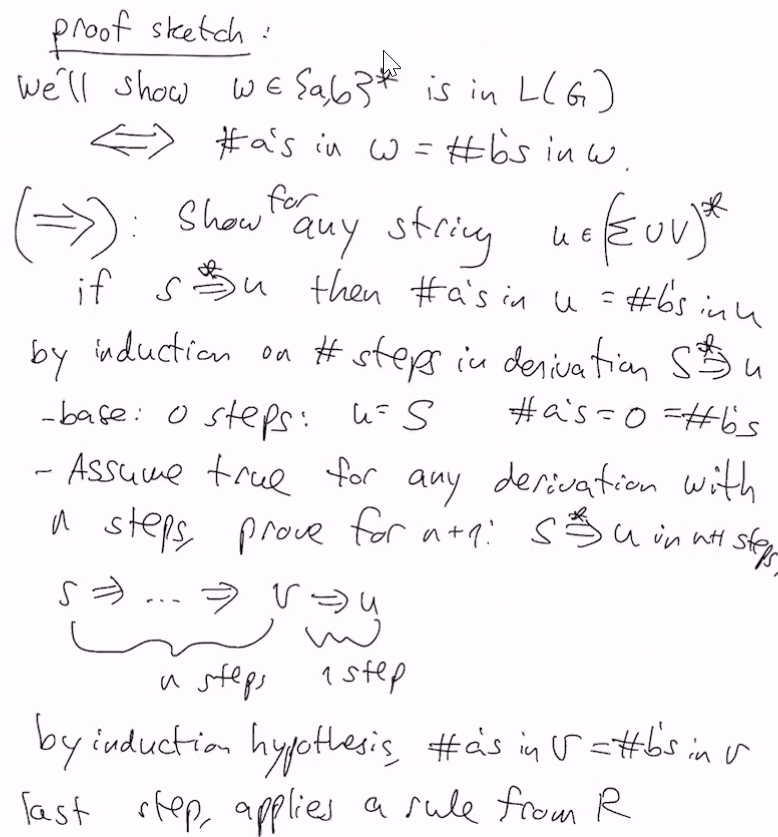 proof sketch :
We'll show w ∈ {a,b}* is in L(G)
⟺ #a's in w = #b's in w.
(⇒): Show for any string u ∈ (Σ ∪ V)*
if S ⇒* u then #a's in u = #b's in u
by induction on # steps in derivation S ⇒* u
- base: 0 steps: u = S #a's = 0 = #b's
- Assume true for any derivation with
n steps, prove for n+1: S ⇒* u in n+1 steps,
S ⇒ ... ⇒ v ⇒ u
n steps 1 step
by induction hypothesis, #a's in v = #b's in v
last step, applies a rule from R